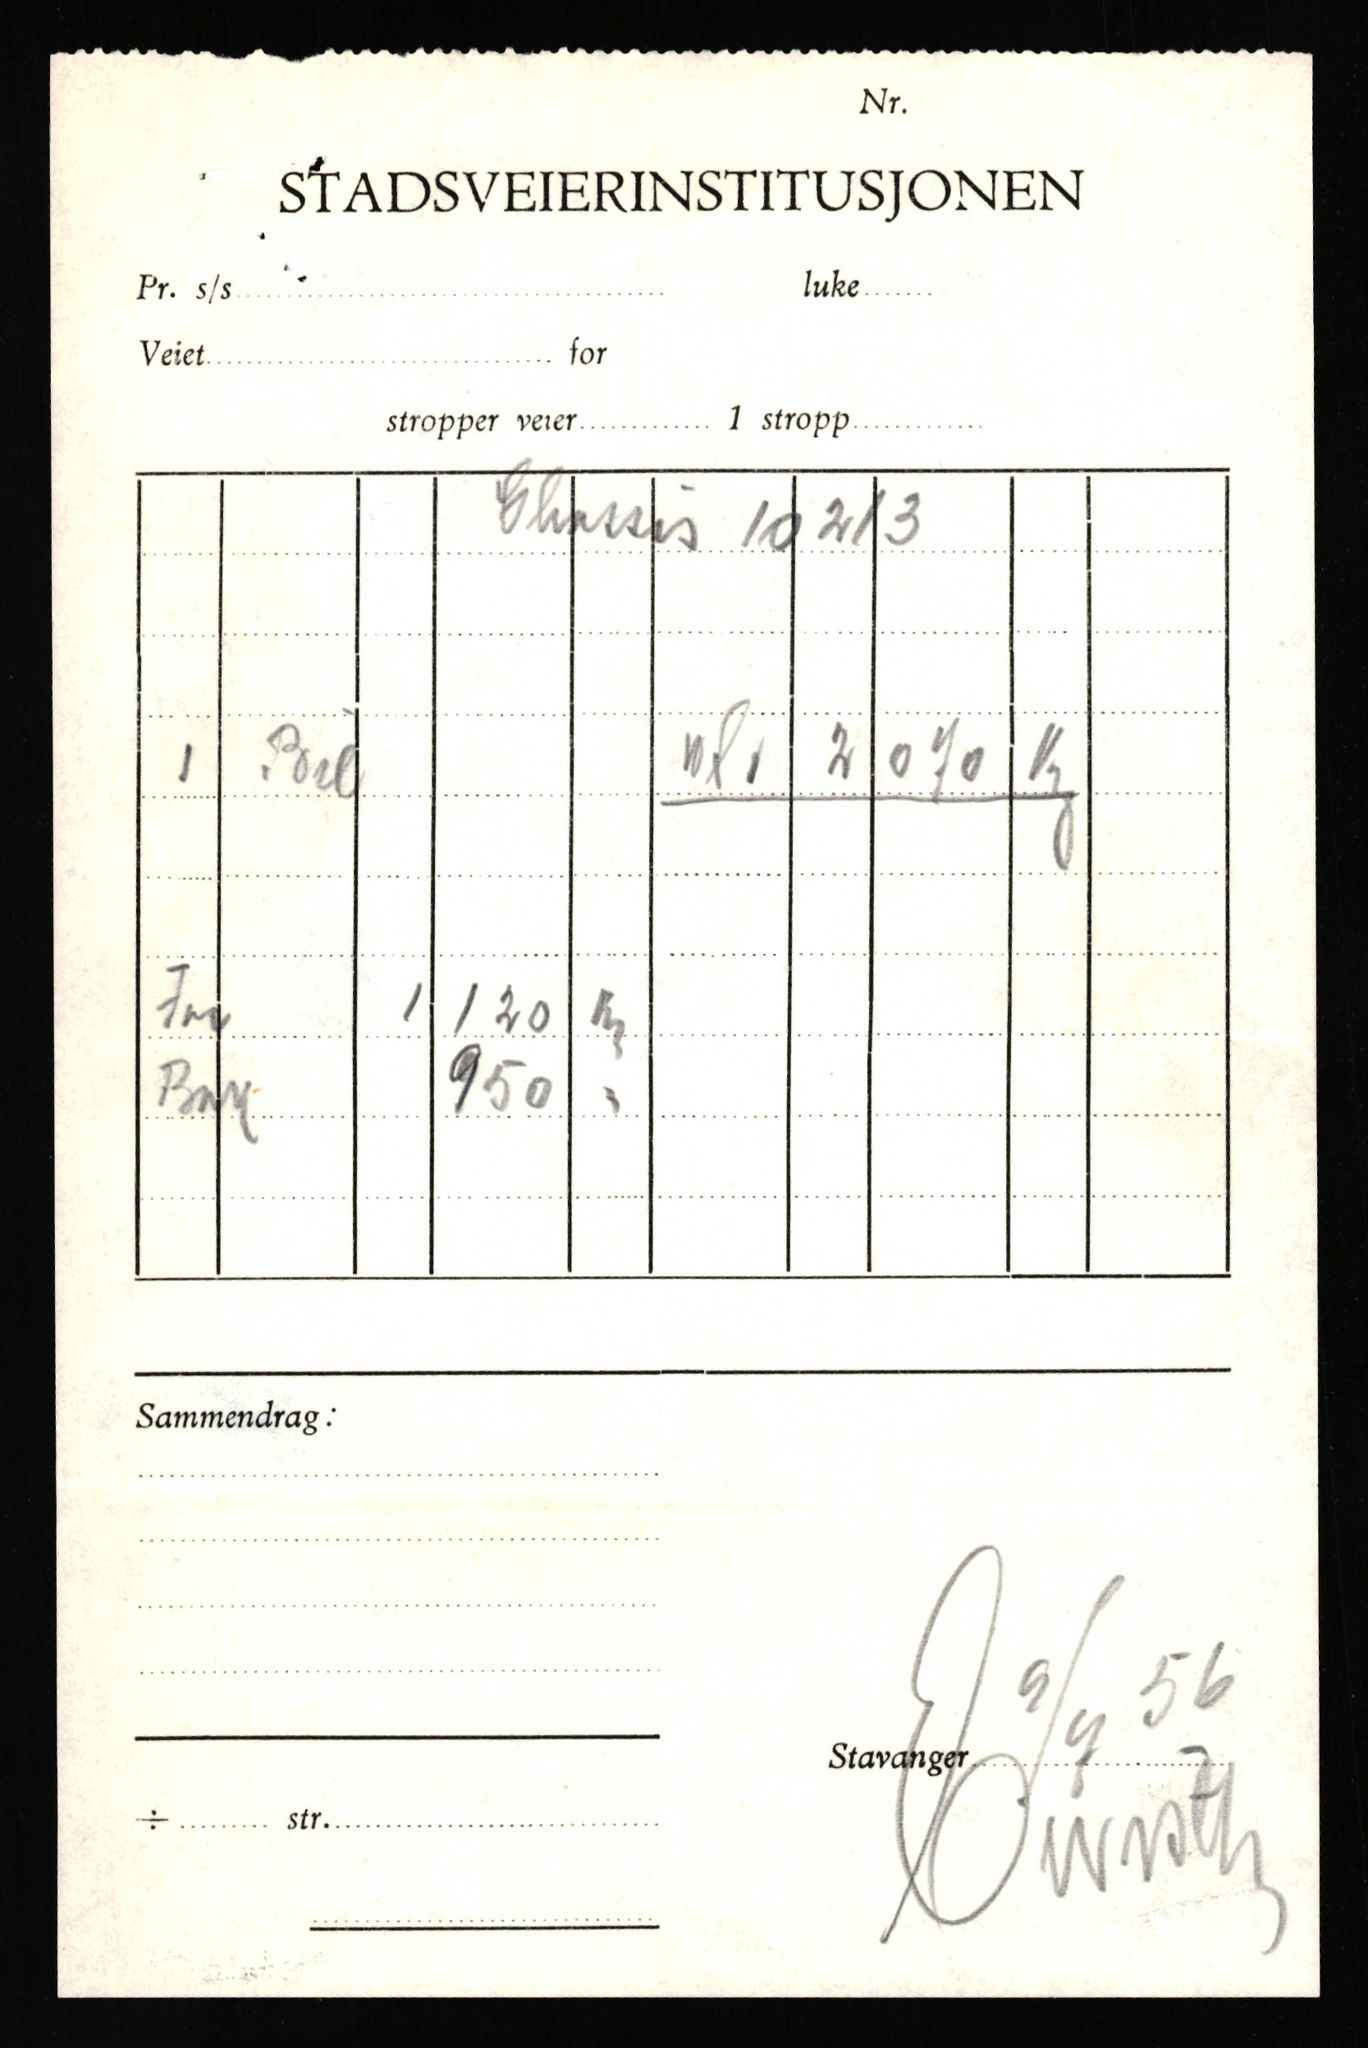 Nr.
STADSVEIERINSTITUSJONEN
Pr. s/s luke
Veiet for
stropper veier 1 stropp
Chassis 10213
1 Bil 2070 Kg
For 1120 Kg
Bak 950 "
Sammendrag:
9/4 56
Stavanger
÷ str.